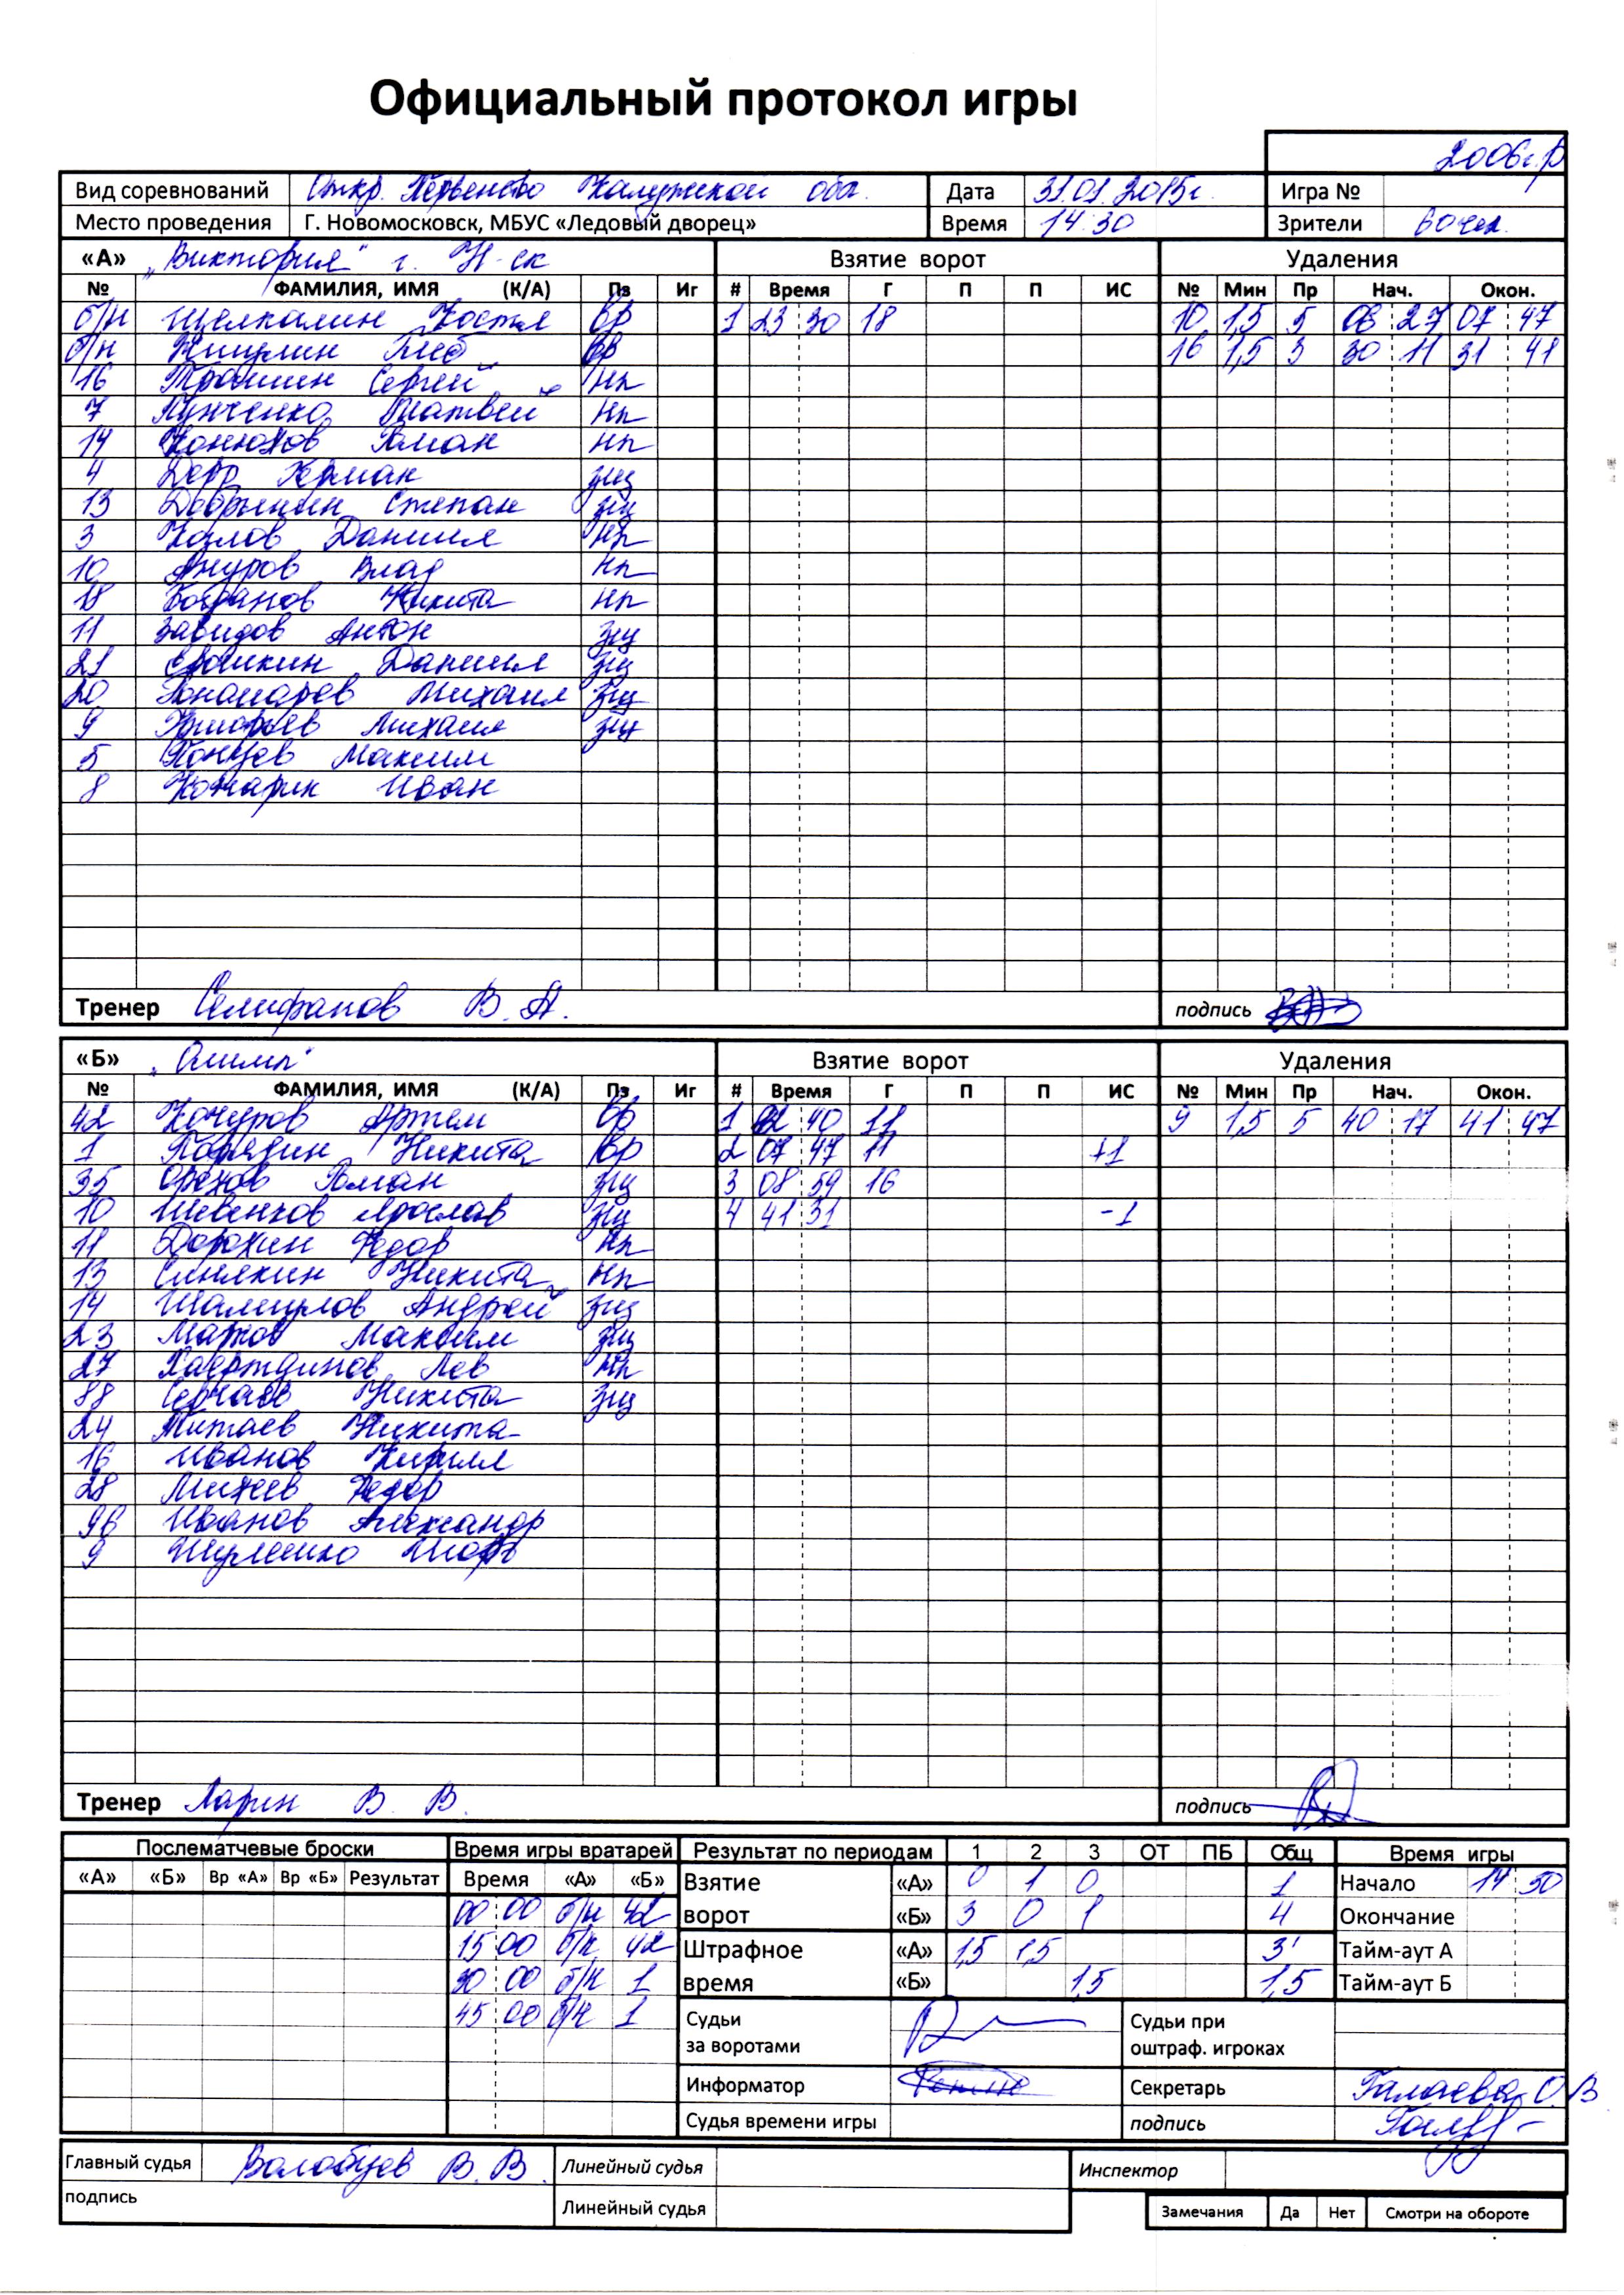 Официальный протокол игры
2006г.р
Вид соревнований Откр. Первенство Калужской обл. Дата 31.01.2015г. Игра №
Место проведения Г. Новомосковск, МБУС «Ледовый дворец» Время 14:30 Зрители 60 чел.
«А» „Виктория" г. Н-ск Взятие ворот Удаления
№ ФАМИЛИЯ, ИМЯ (К/А) Пз Иг # Время Г П П ИС № Мин Пр Нач. Окон.
б/н Щелкалин Костя Вр 1 23 30 18 10 1,5 5 06 27 07 47
б/н Глеб Вр 16 1,5 3 30 11 31 41
16 Трошин Сергей Нп
7 Лунченко Матвей Нп
14 Конюхов Роман Нп
4 Герман Зщ
13 Добрынин Степан Зщ
3 Козлов Даниил Нп
10 Ануров Влад Нп
18 Богданов Никита Нп
11 Завидов Антон Зщ
21 Ерошкин Даниил Зщ
20 Пономарев Михаил Зщ
9 Григорьев Михаил Зщ
5 Максим
8 Кочарин Иван
Тренер Селифанов В.А. подпись
«Б» „Олимп" Взятие ворот Удаления
№ ФАМИЛИЯ, ИМЯ (К/А) Пз Иг # Время Г П П ИС № Мин Пр Нач. Окон.
42 Артем Вр 1 02 40 11 9 1,5 5 40 17 41 47
1 Никита Вр 2 07 47 11 +1
35 Орехов Роман Зщ 3 08 59 16
10 Шевенков Ярослав Зщ 4 41 31 -1
11 Дорохин Федор Нп
13 Синякин Никита Нп
14 Андрей Зщ
23 Максим Зщ
27 Хаертдинов Лев Нп
88 Никита Зщ
24 Титаев Никита
16 Иванов Кирилл
28 Михеев Федор
96 Иванов Александр
9 Игорь
Тренер Ларин В. В. подпись
Послематчевые броски Время игры вратарей Результат по периодам 1 2 3 ОТ ПБ Общ Время игры
«А» «Б» Вр «А» Вр «Б» Результат Время «А» «Б» Взятие «А» 0 1 0 1 Начало 14 50
00 00 б/н 42 ворот «Б» 3 0 1 4 Окончание
15 00 б/н 42 Штрафное «А» 1,5 1,5 3' Тайм-аут А
30 00 б/н 1 время «Б» 1,5 1,5 Тайм-аут Б
45 00 б/н 1 Судьи за воротами Судьи при оштраф. игроках
Информатор Секретарь Галаева О.В
Судья времени игры подпись
Главный судья Волобуев В.В. Линейный судья Инспектор
подпись Линейный судья Замечания Да Нет Смотри на обороте